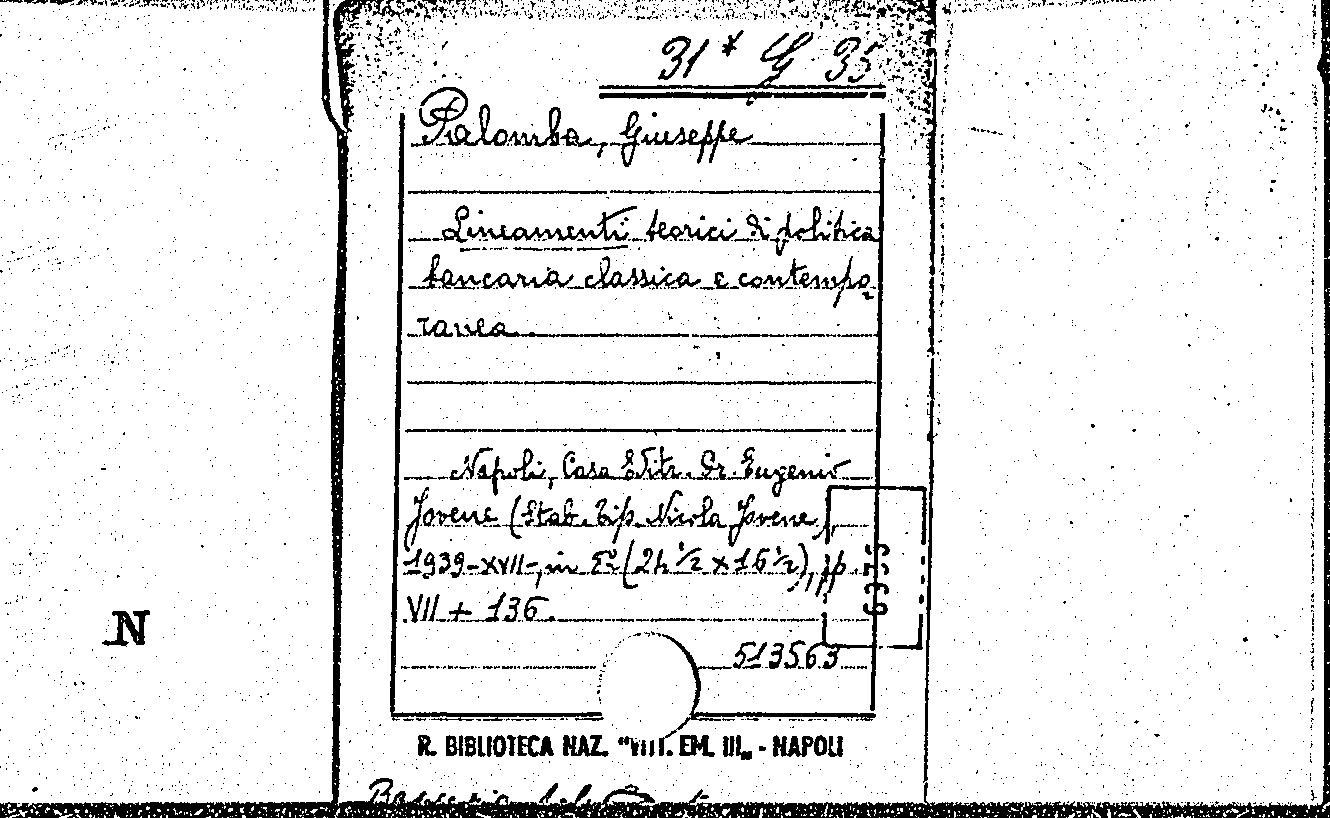 31* G 35
Palomba, Giuseppe
Lineamenti teorici di politica
bancaria classica e contempo-
ranea.
Napoli, Casa Editr. Dr. Eugenio
Jovene (Stab. Tip. Nicola Jovene),
1939-XVII-, in 8º (24 ½ x 16 ½), pp.
VII + 136.
513563
N
R. BIBLIOTECA NAZ. "VITT. EM. III„ - NAPOLI